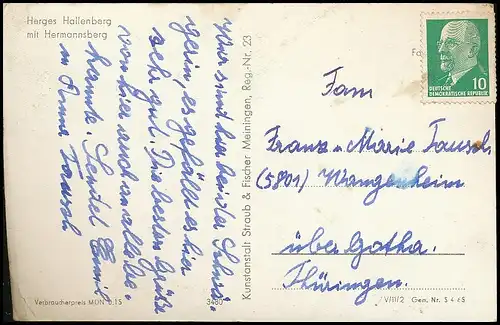 Herges Hallenberg
mit Hermannsberg
Wir sind hier bei der Schwie-
gerin, es gefällt es hier
sehr gut. Die besten Grüße
von hier auch an alle Be-
kannte. Sendet Emil
u Anna Tausch
Verbraucherpreis MDN 0,15
3480
Kunstanstalt Straub & Fischer Meiningen, Reg.-Nr. 23
DEUTSCHE
DEMOKRATISCHE REPUBLIK
10
Fam
Franz u Marie Tausch
(5801) Wangenheim
über Gotha.
Thüringen.
V/11/2 Gen. Nr. S 4 65